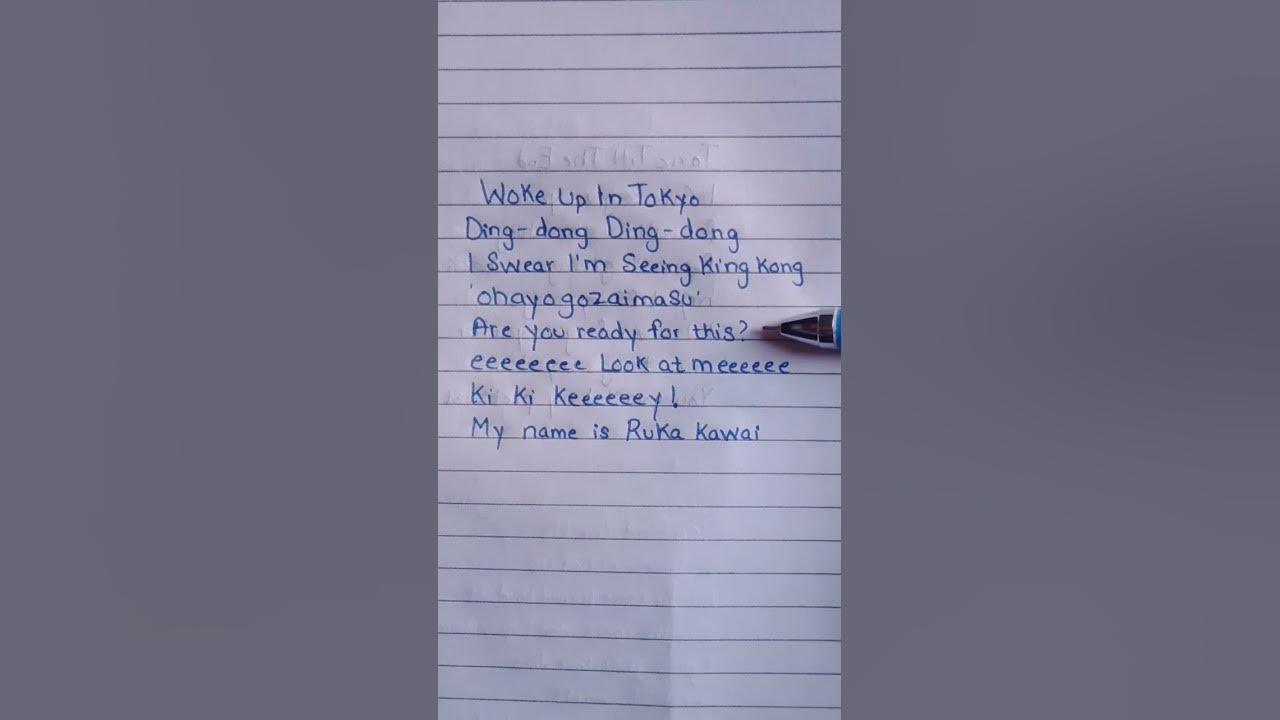 Woke Up In Tokyo
Ding-dong Ding-dong
I Swear I'm Seeing King Kong
'ohayogozaimasu'
Are you ready for this?
eeeeeeee Look at meeeeee
Ki Ki Keeeeeey!
My name is Ruka Kawai